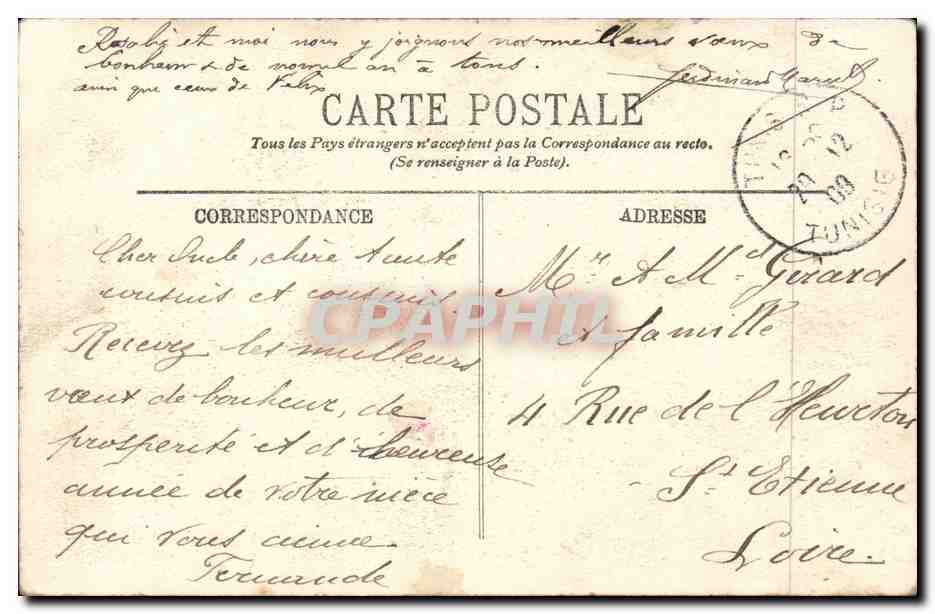 Rosalie et moi nous y joignons nos meilleurs vœux de
bonheur & de nouvel an à tous.
ainsi que ceux de Félix
Ferdinand Marcel
CARTE POSTALE
Tous les Pays étrangers n'acceptent pas la Correspondance au recto.
(Se renseigner à la Poste).
TUNIS
29 12
09
TUNISIE
CORRESPONDANCE
Cher Oncle, chère tante
cousins et cousines
Recevez les meilleurs
vœux de bonheur, de
prosperité et d'heureuse
année de votre nièce
qui vous aime
Fernande
ADRESSE
Mr et Md Girard
et famille
4 Rue de l'Heurton
St Etienne
Loire.
CPAPHIL